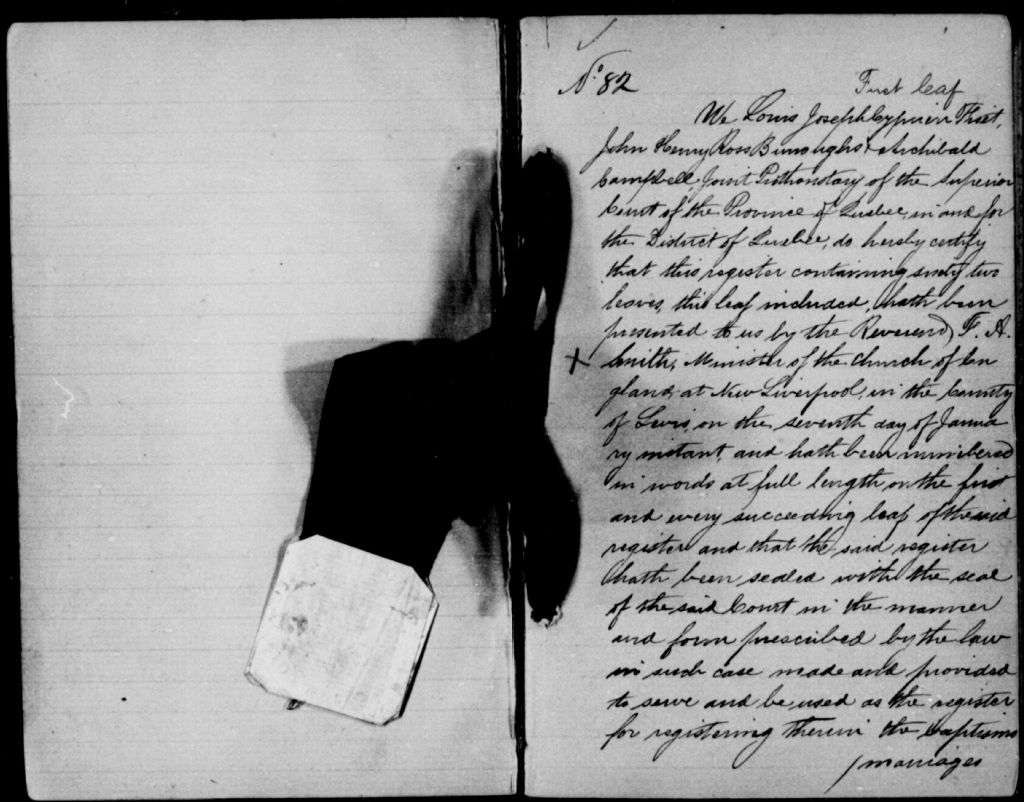 No. 82
First leaf
We Louis Joseph Cyprien Fiset,
John Henry Ross Burroughs & Archibald
Campbell, Joint Prothonotary of the Superior
Court of the Province of Quebec, in and for
the District of Quebec, do hereby certify
that this register containing sixty two
leaves, this leaf included, hath been
presented to us by the Reverend F. A.
+ Smith, Minister of the church of En
gland, at New Liverpool, in the County
of Levis, on the seventh day of Janua
ry instant, and hath been numbered
in words at full length on the first
and every succeeding leaf of the said
register and that the said register
hath been sealed with the seal
of the said Court in the manner
and form prescribed by the law
in such case made and provided
to serve and be used as the register
for registering therein the baptisms
/marriages